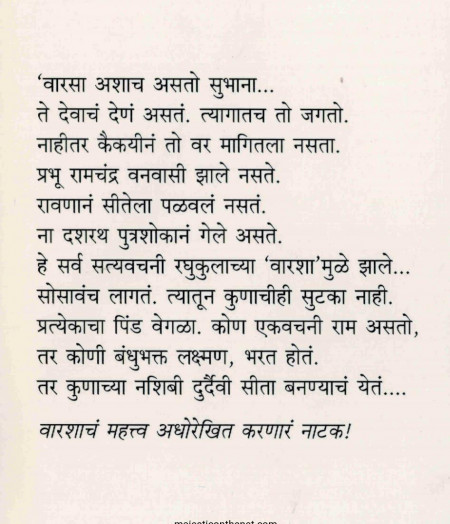 ‘वारसा अशाच असतो सुभाना...
ते देवाचं देणं असतं. त्यागातच तो जगतो.
नाहीतर कैकयीनं तो वर मागितला नसता.
प्रभू रामचंद्र वनवासी झाले नसते.
रावणानं सीतेला पळवलं नसतं.
ना दशरथ पुत्रशोकानं गेले असते.
हे सर्व सत्यवचनी रघुकुलाच्या ‘वारशा’मुळे झाले...
सोसावंच लागतं. त्यातून कुणाचीही सुटका नाही.
प्रत्येकाचा पिंड वेगळा. कोण एकवचनी राम असतो,
तर कोणी बंधुभक्त लक्ष्मण, भरत होतं.
तर कुणाच्या नशिबी दुर्दैवी सीता बनण्याचं येतं....
वारशाचं महत्त्व अधोरेखित करणारं नाटक!